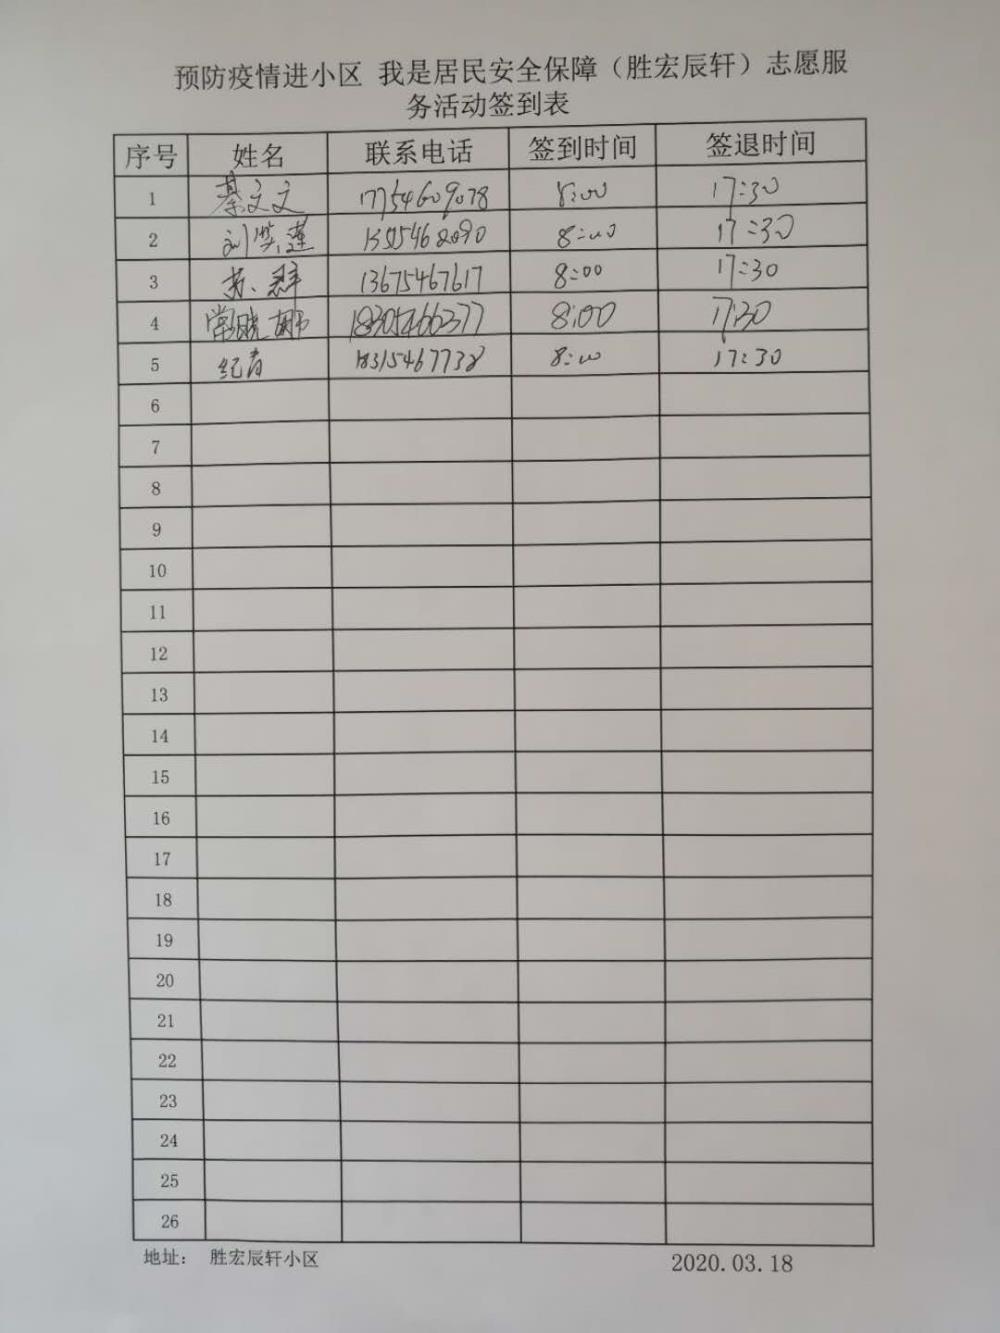 预防疫情进小区 我是居民安全保障（胜宏辰轩）志愿服
务活动签到表
序号 姓名 联系电话 签到时间 签退时间
1 綦文文 17754609078 8:00 17:30
2 刘 8:00 17:30
3 苏群 13675467617 8:00 17:30
4 常晓 18305466377 8:00 17:30
5 纪青 18315467738 8:00 17:30
6
7
8
9
10
11
12
13
14
15
16
17
18
19
20
21
22
23
24
25
26
地址： 胜宏辰轩小区 2020.03.18